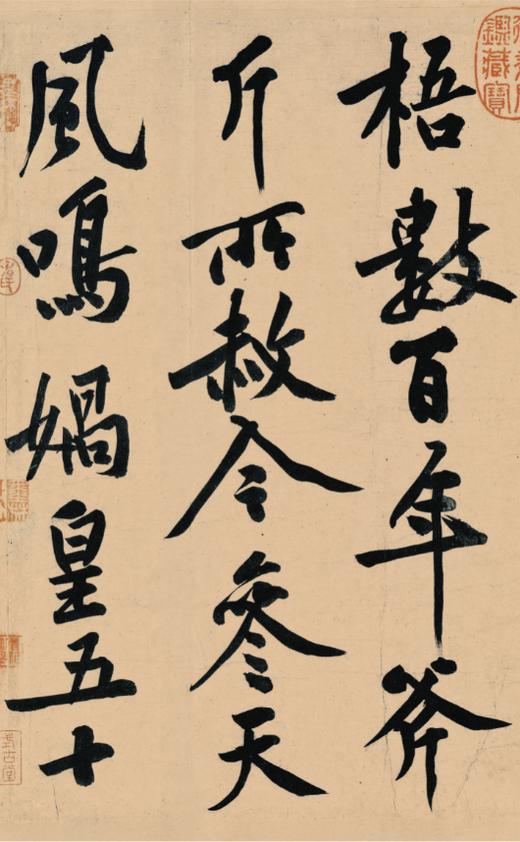 梧數百年斧
斤所赦今參天
風鳴媧皇五十